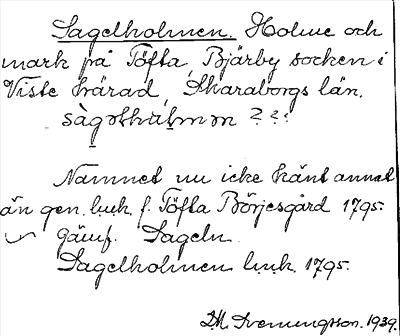 Sagelholmen. Holme och
mark på Töfta, Bjärby socken i
Viste härad, Skaraborgs län.
Namnet nu icke känt annat
än gen. l.u.k. f. Töfta Börjesgård 1795.
jämf. Sageln
Sagelholmen l.u.k. 1795.
D.M. Svenungsson. 1939.